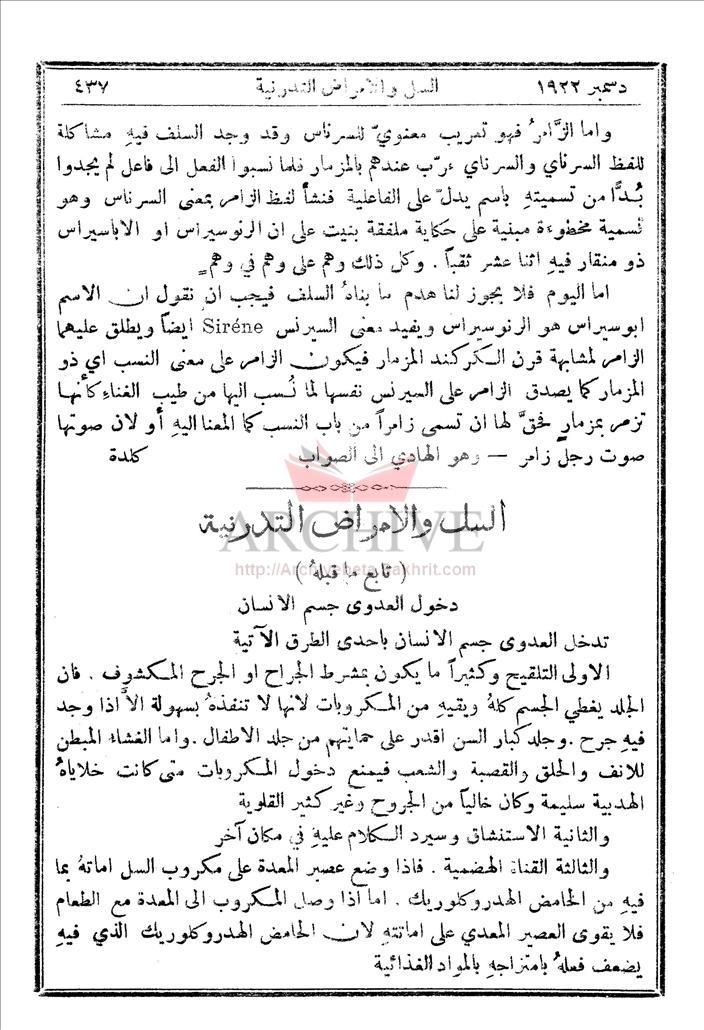 دسمبر ١٩٢٢ السل والامراض التدرنية ٤٣٧
واما الزَّامرُ فهو تعريب معنويّ للسرناس وقد وجد السلف فيهِ مشاكلة
للفظ السرناي والسرناي عرّب عندهم بالمزمار فلما نسبوا الفعل الى فاعل لم يجدوا
بُدًّا من تسميتهِ باسم يدلّ على الفاعلية فنشأ لفظ الزامر بمعنى السرناس وهو
تسمية مخطوءة مبنية على حكاية ملفقة بنيت على ان الرنوسيراس او الاباسيراس
ذو منقار فيهِ اثنا عشر ثقباً . وكل ذلك وهم على وهم في وهم
اما اليوم فلا يجوز لنا هدم ما بناهُ السلف فيجب ان نقول ان الاسم
ابوسيراس هو الرنوسيراس ويفيد معنى السيرنس Siréne ايضاً ويطلق عليهما
الزامر لمشابهة قرن الكركند المزمار فيكون الزامر على معنى النسب اي ذو
المزمار كما يصدق الزامر على السيرنس نفسها لما نُسب اليها من طيب الغناء كأنها
تزمر بمزمار فحقَّ لها ان تسمى زامراً من باب النسب كما المعنا اليهِ أو لان صوتها
صوت رجل زامر — وهو الهادي الى الصواب كلدة
السل والامراض التدرنية
ARCHIVE
http://Archivebeta.Sakhrit.com
( تابع ما قبلهُ )
دخول العدوى جسم الانسان
تدخل العدوى جسم الانسان باحدى الطرق الآتية
الاولى التلقيح وكثيراً ما يكون بمشرط الجراح او الجرح المكشوف . فان
الجلد يغطي الجسم كلهُ ويقيهِ من المكروبات لانها لا تنفذهُ بسهولة الاَّ اذا وجد
فيهِ جرح . وجلد كبار السن اقدر على حمايتهم من جلد الاطفال . واما الغشاء المبطن
للانف والحلق والقصبة والشعب فيمنع دخول المكروبات متى كانت خلاياهُ
الهدبية سليمة وكان خالياً من الجروح وغير كثير القلوية
والثانية الاستنشاق وسيرد الكلام عليهِ في مكان آخر
والثالثة القناة الهضمية . فاذا وضع عصير المعدة على مكروب السل اماتهُ بما
فيهِ من الحامض الهدروكلوريك . اما اذا وصل المكروب الى المعدة مع الطعام
فلا يقوى العصير المعدي على اماتتهِ لان الحامض الهدروكلوريك الذي فيهِ
يضعف فعلهُ بامتزاجهِ بالمواد الغذائية